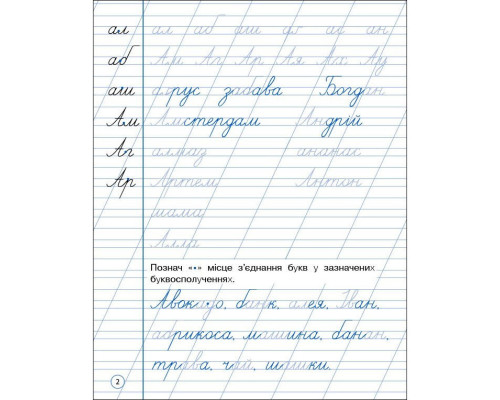 ал ал аб аш аг ад ан
аб Ам Аг Ар Ая Ах Ау
аш фрус забава Богдан
Ам Амстердам Андрій
Аг алмаз ананас
Ар Артем Антон
мама
Алла
Познач «•» місце з'єднання букв у зазначених
буквосполученнях.
Авокадо, банк, алея, Іван,
абрикоса, машина, банан,
трава, чай, шашки.
2